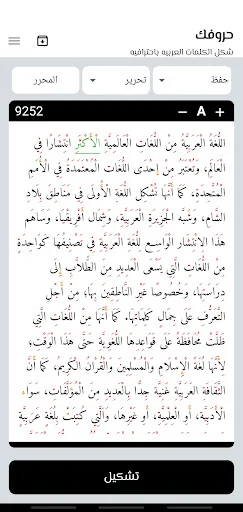 حروفك
شكل الكلمات العربيه باحترافيه
حفظ
تحرير
المحرر
9252
− A +
اللُّغَةُ الْعَرَبِيَّةُ مِنْ اللُّغَاتِ الْعَالَمِيَّةِ الْأَكْثَرِ انْتِشَارًا فِي
الْعَالَمِ، وَتُعْتَبَرُ مِنْ إِحْدَى اللُّغَاتِ الْمُعْتَمَدَةِ فِي الْأُمَمِ
الْمُتَّحِدَةِ، كَمَا أَنَّهَا تُشَكِّلُ اللُّغَةَ الْأُولَى فِي مَنَاطِقِ بِلَادِ
الشَّامِ، وَشُبْهِ الْجَزِيرَةِ الْعَرَبِيَّةِ، وَشَمَالِ أَفْرِيقْيَا، وَسَاهَمَ
هَذَا الِانْتِشَارُ الْوَاسِعُ لِلُّغَةِ الْعَرَبِيَّةِ فِي تَصْنِيفِهَا كَوَاحِدَةٍ
مِنْ اللُّغَاتِ الَّتِي يَسْعَى الْعَدِيدُ مِنْ الطُّلَّابِ إلَى
دِرَاسَتِهَا، وَخُصُوصًا غَيْرَ النَّاطِقِينَ بِهَا؛ مِنْ أَجْلِ
التَّعَرُّفِ عَلَى جَمَالِ كَلِمَاتِهَا. كَمَا أَنَّهَا مِنْ اللُّغَاتِ الَّتِي
ظَلَّتْ مُحَافِظَةً عَلَى قَوَاعِدِهَا اللُّغَوِيَّةِ حَتَّى هَذَا الْوَقْتِ؛
لِأَنَّهَا لُغَةُ الْإِسْلَامِ وَالْمُسْلِمِينَ وَالْقُرْآنِ الْكَرِيمِ، كَمَا أَنَّ
الثَّقَافَةَ الْعَرَبِيَّةَ غَنِيَّةٌ جِدًّا بِالْعَدِيدِ مِنْ الْمُؤَلَّفَاتِ، سَوَاءٌ
الْأَدَبِيَّةِ، أَوْ الْعِلْمِيَّةِ، أَوْ غَيْرِهَا، وَاَلَّتِي كُتِبَتْ بِلُغَةٍ عَرَبِيَّةٍ
تشكيل